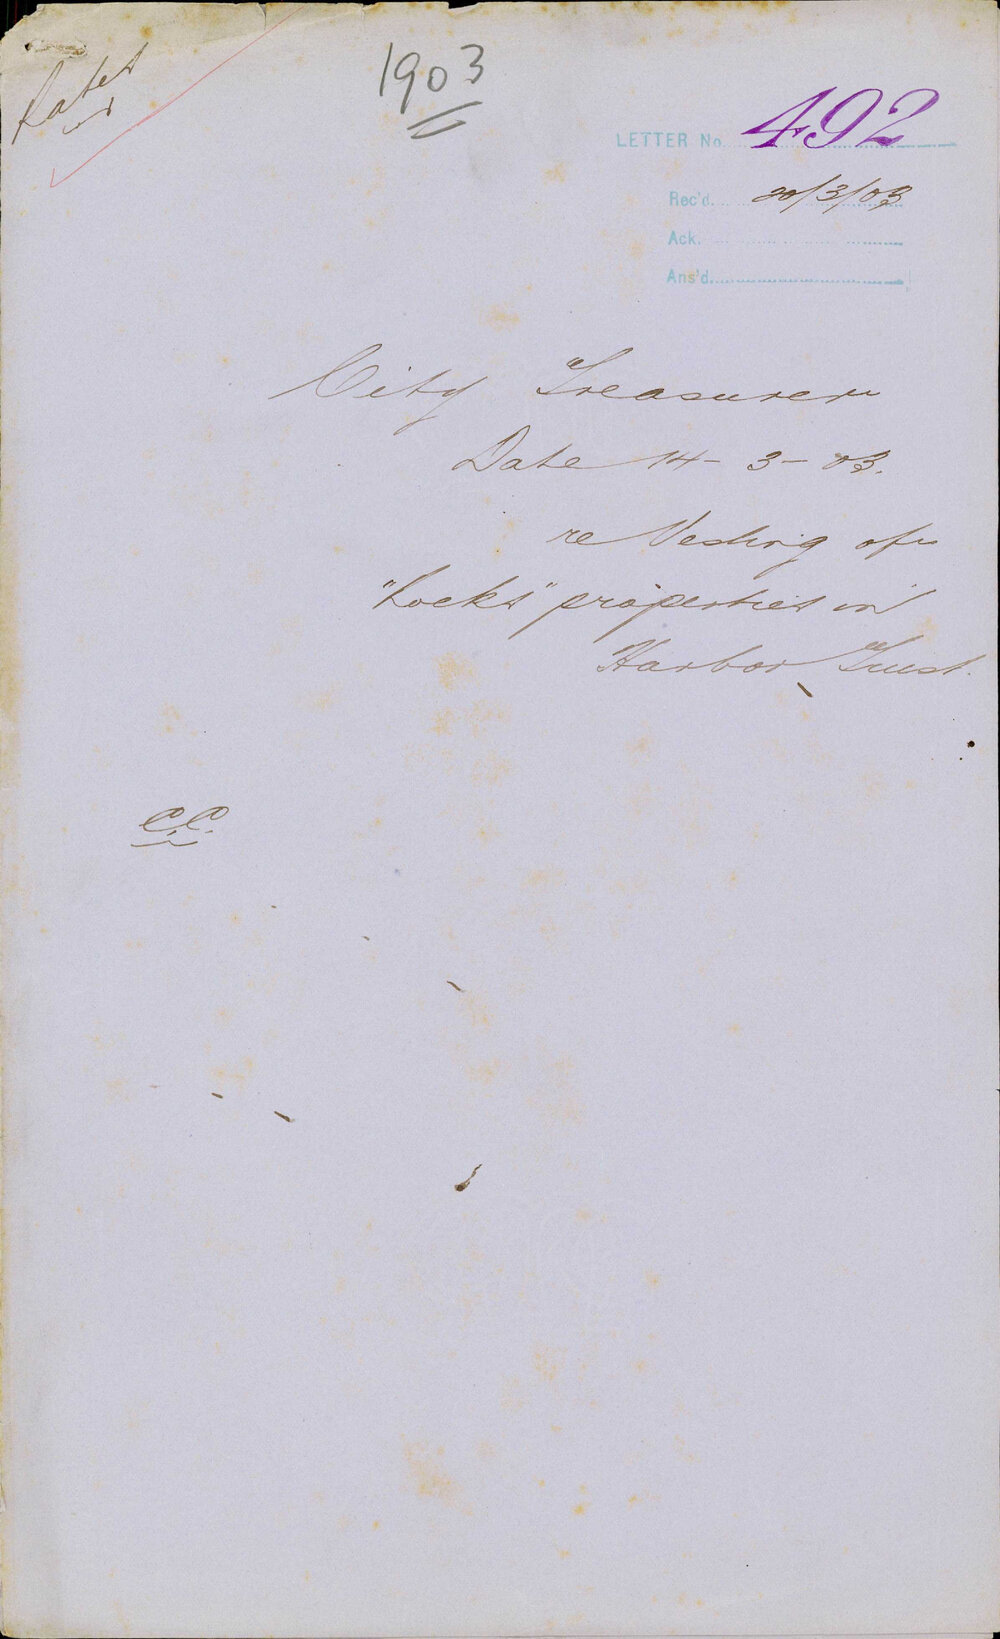 Rates
1903
LETTER No. 492
Rec'd. 20/3/03
Ack.
Ans'd.
City Treasurer
Date 14-3-03.
re Vesting of
"Rocks" properties in
Harbor Trust.
C.C.